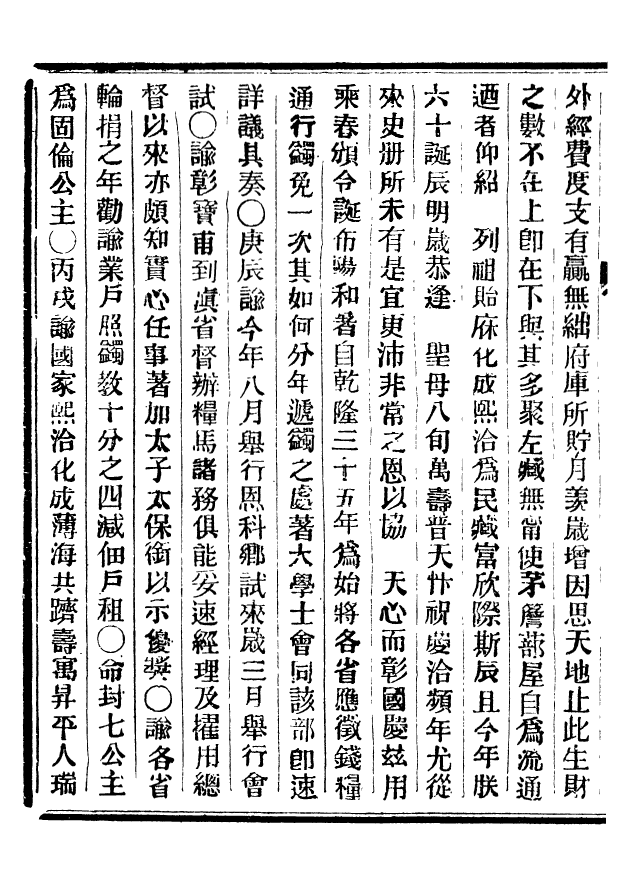 外經費度支有贏無絀府庫所貯月羨歲增因思天地止此生財
之數不在上卽在下與其多聚左藏無甯使茅簷蔀屋自爲流通
廼者仰紹　列祖貽庥化成熙洽爲民藏富欣際斯辰且今年朕
六十誕辰明歲恭逢　聖母八旬萬壽普天忭祝慶洽頻年尤從
來史册所未有是宜更沛非常之恩以協　天心而彰國慶茲用
乘春頒令誕布陽和著自乾隆三十五年爲始將各省應徵錢糧
通行蠲免一次其如何分年遞蠲之處著大學士會同該部卽速
詳議具奏〇庚辰諭今年八月舉行恩科鄉試來歲三月舉行會
試〇諭彰寶甫到滇省督辦糧馬諸務俱能妥速經理及擢用總
督以來亦頗知實心任事著加太子太保銜以示優獎〇諭各省
輪捐之年勸諭業戶照蠲數十分之四減佃戶租〇命封七公主
爲固倫公主〇丙戌諭國家熙洽化成薄海共躋壽寓昇平人瑞